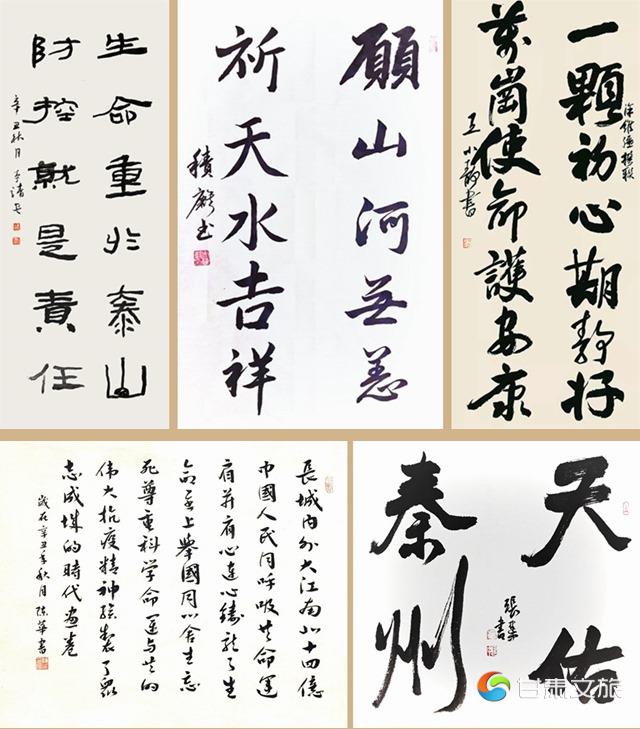 生命重於泰山
防控就是責任
辛丑秋月
願山河無恙
祈天水吉祥
一顆初心期靜好
萬崗使命護安康
長城內外大江南北十四億
中國人民同呼吸共命運
肩并肩心連心鑄就了生
命至上舉國同心舍生忘
死尊重科学命運與共的
偉大抗疫精神了眾
志成城的時代畫卷
歲在辛丑年秋月陳華書
天佑
秦州
甘肃文旅